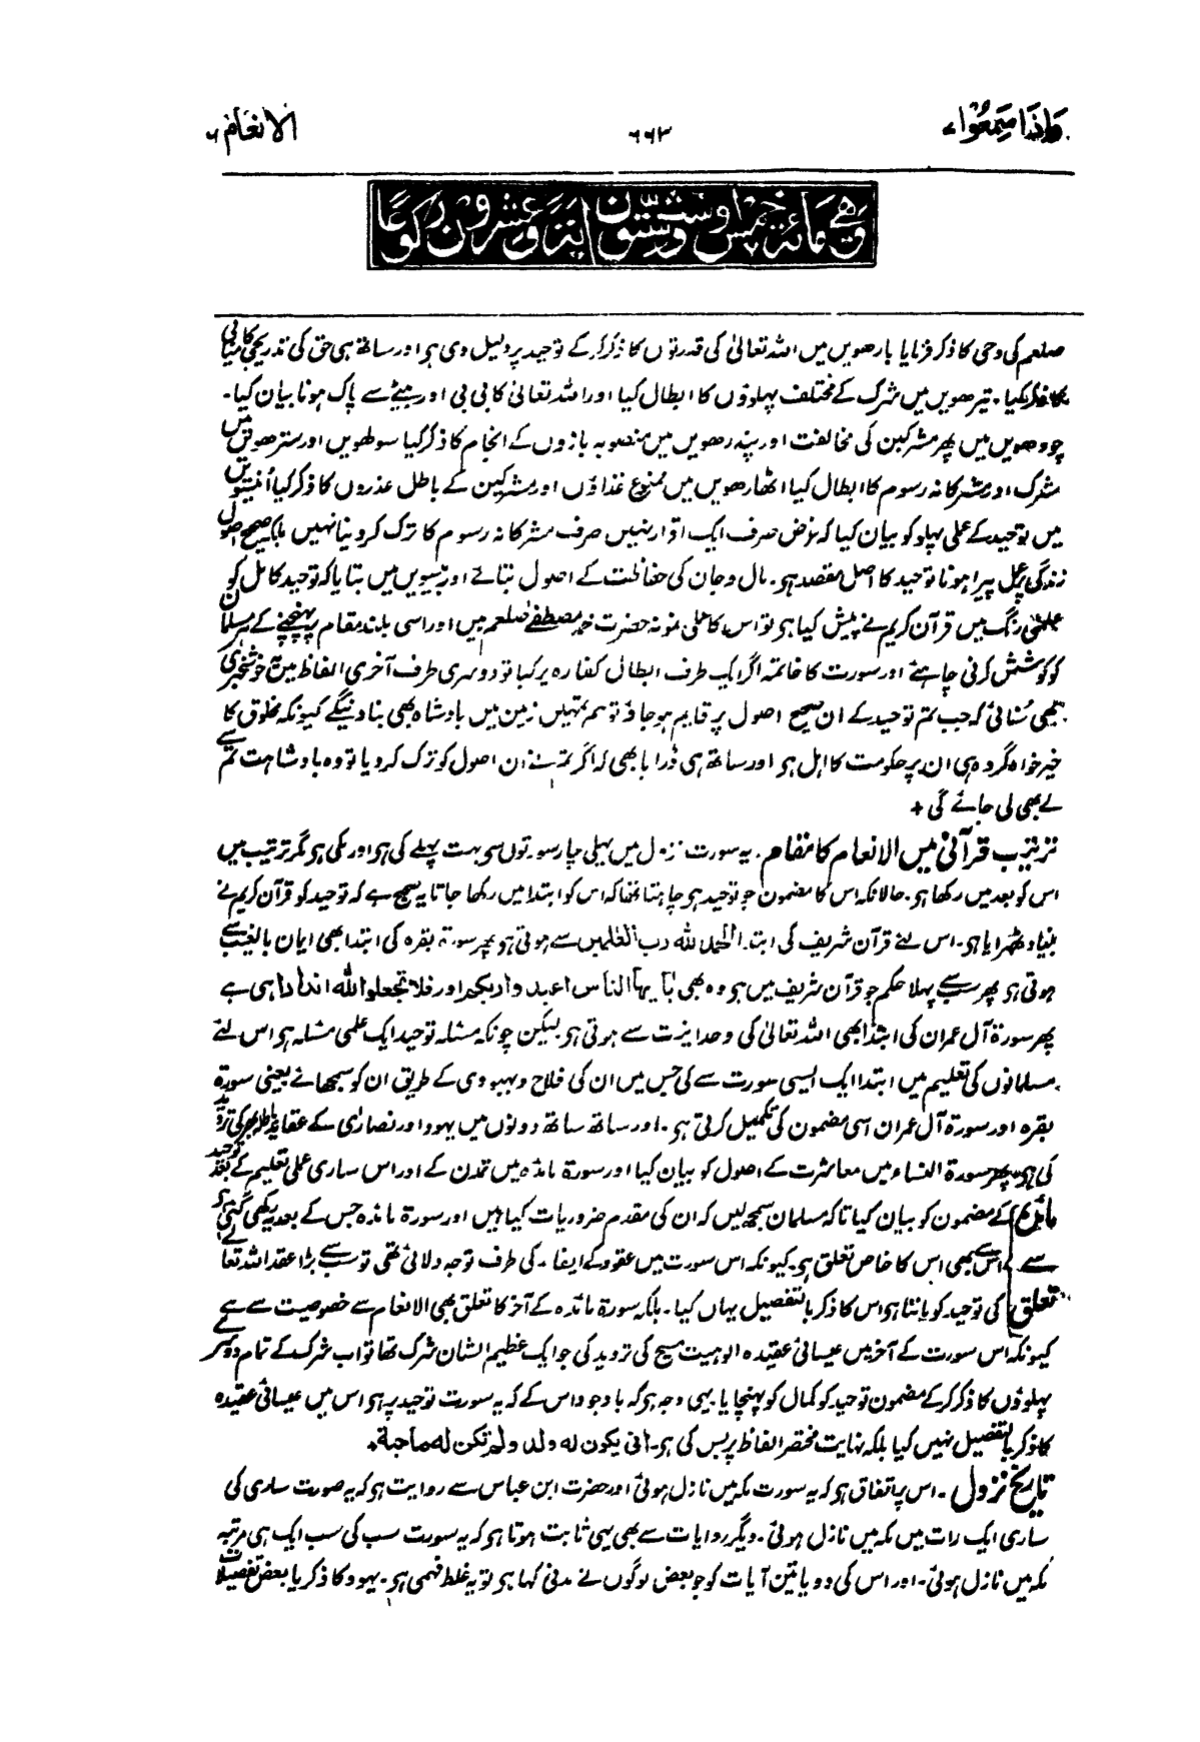 واذا سمعوا ۷
۶۶۳
الانعام ۶
وهي مائة خمس او ست وستون اية وعشرون ركوعا
صلعم کی وحی کا ذکر فرمایا بارھویں میں اللہ تعالیٰ کی قدرتوں کا ذکر کرکے توحید پر دلیل دی ہو اور ساتھ ہی حق کی تدریجی کامیابی
کا ذکر کیا۔ تیرھویں میں شرک کے مختلف پہلوؤں کا ابطال کیا اور اللہ تعالیٰ کا بی بی اور بیٹے سے پاک ہونا بیان کیا۔
چودھویں میں پھر مشرکین کی مخالفت اور پندرھویں میں منصوبہ بازوں کے انجام کا ذکر کیا سولھویں اور سترھویں میں
شرک اور مشرکانہ رسوم کا ابطال کیا اٹھارھویں میں ممنوع غذاؤں اور مشرکین کے باطل عذروں کا ذکر کیا اُنیسویں
میں توحید کے عملی پہلو کو بیان کیا کہ غرض صرف ایک اقرار نہیں صرف مشرکانہ رسوم کا ترک کر دینا نہیں بلکہ صحیح اصول
زندگی پر عمل پیرا ہونا توحید کا اصل مقصد ہو۔ مال و جان کی حفاظت کے اصول بتائے اور بیسویں میں بتایا کہ توحید کامل کو
عملی رنگ میں قرآن کریم نے پیش کیا ہو تو اس کا عملی نمونہ حضرت محمد مصطفےٰ صلعم ہیں اور اسی بلند مقام پر پہنچنے کے ہر مسلمان
کو کوشش کرنی چاہئے اور سورت کا خاتمہ اگر ایک طرف ابطال کفارہ پر کیا تو دوسری طرف آخری الفاظ میں یہ خوشخبری
بھی سُنائی کہ جب تم توحید کے ان صحیح اصول پر قایم ہو جاؤ تو ہم تمہیں زمین میں بادشاہ بھی بنا دینگے کیونکہ مخلوق کا
خیر خواہ گروہ ہی ان پر حکومت کا اہل ہو اور ساتھ ہی ڈرایا بھی کہ اگر تم نے ان اصول کو ترک کر دیا تو وہ بادشاہت تم سے
لے بھی لی جائے گی +
ترتیب قرآنی میں الانعام کا مقام۔ یہ سورت نزول میں پہلی چار سورتوں سو بہت پہلے کی ہو اور مکی ہو مگر ترتیب میں
اس کو بعد میں رکھا ہو۔ حالانکہ اس کا مضمون جو توحید ہو چاہتا تھا کہ اس کو ابتدا میں رکھا جاتا یہ صحیح ہے کہ توحید کو قرآن کریم نے
بنیاد ٹھہرایا ہو۔ اس لئے قرآن شریف کی ابتدا الحمد لله رب العلمین سے ہوتی ہو پھر سورۃ بقرہ کی ابتدا بھی ایمان بالغیب سے
ہوتی ہو پھر سب سے پہلا حکم جو قرآن شریف میں ہو وہ بھی یا یها الناس اعبدوا ربکم اور فلا تجعلوا لله اندادا ہی ہے
پھر سورۃ آل عمران کی ابتدا بھی اللہ تعالیٰ کی وحدانیت سے ہوتی ہو لیکن چونکہ مسئلہ توحید ایک علمی مسئلہ ہو اس لئے
مسلمانوں کی تعلیم میں ابتدا ایک ایسی سورت سے کی جس میں ان کی فلاح و بہبودی کے طریق ان کو سمجھائے یعنی سورۃ
بقرہ اور سورۃ آل عمران اسی مضمون کی تکمیل کرتی ہو۔ اور ساتھ ساتھ دونوں میں یہود اور نصاریٰ کے عقاید کی تردید
کی ہو پھر سورۃ النساء میں معاشرت کے اصول کو بیان کیا اور سورۃ مائدہ میں تمدن کے اور اس ساری عملی تعلیم کے بعد توحید
کے مضمون کو بیان کیا تا کہ مسلمان سمجھ لیں کہ ان کی مقدم ضروریات کیا ہیں اور سورۃ مائدہ جس کے بعد یہ رکھی گئی ہو
مائدہ سے تعلق
اس سے بھی اس کا خاص تعلق ہو کیونکہ اس سورت میں عقود کے ایفاء کی طرف توجہ دلائی تھی تو سب سے بڑا عقد اللہ تعالےٰ
کی توحید کو ماننا ہو اس کا ذکر بالتفصیل یہاں کیا۔ بلکہ سورۃ مائدہ کے آخر کا تعلق بھی الانعام سے خصوصیت سے ہے
کیونکہ اس سورت کے آخر میں عیسائی عقیدہ الوہیت مسیح کی تردید کی جو ایک عظیم الشان شرک تھا تو اب شرک کے تمام دوسرے
پہلوؤں کا ذکر کرکے مضمون توحید کو کمال کو پہنچایا یہی وجہ ہو کہ باوجود اس کے کہ یہ سورت توحید پر ہو اس میں عیسائی عقیدہ
کا ذکر بالتفصیل نہیں کیا بلکہ نہایت مختصر الفاظ پر بس کی ہو۔ انی یکون له ولد ولم تکن له صاحبة+
تاریخ نزول۔ اس پر اتفاق ہو کہ یہ سورت مکہ میں نازل ہوئی اور حضرت ابن عباس سے روایت ہو کہ یہ صورت ساری کی
ساری ایک رات میں مکہ میں نازل ہوئی۔ دیگر روایات سے بھی یہی ثابت ہوتا ہو کہ یہ سورت سب کی سب ایک ہی مرتبہ
مکہ میں نازل ہوئی۔ اور اس کی دو یا تین آیات کو جو بعض لوگوں نے مدنی کہا ہو تو یہ غلط فہمی ہو۔ یہود کا ذکر یا بعض تفصیلات